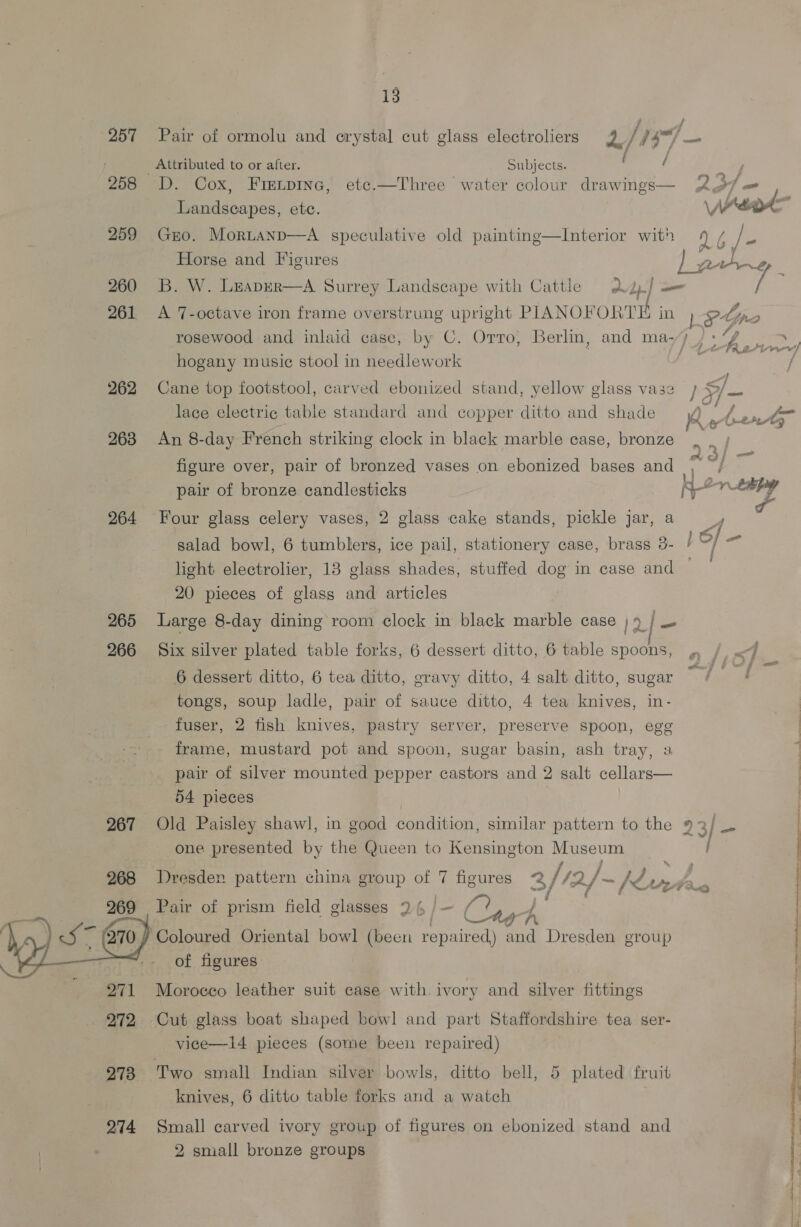 13
257 Pair of ormolu and crystal cut glass electroliers 2/15/-
Attributed to or after. Subjects.
258 D. Cox, FIELDING, etc.—Three water colour drawings— 23/-
Landscapes, etc.
259 GEO. MORLAND—A speculative old painting—Interior with 26/-
Horse and Figures
260 B. W. LEADER—A Surrey Landscape with Cattle 24/-
261 A 7-octave iron frame overstrung upright PIANOFORTE in
rosewood and inlaid case, by C. OTTO, Berlin, and ma-
hogany music stool in needlework
262 Cane top footstool, carved ebonized stand, yellow glass vase 15/-
lace electric table standard and copper ditto and shade
263 An 8-day French striking clock in black marble case, bronze 23/-
figure over, pair of bronzed vases on ebonized bases and
pair of bronze candlesticks
264 Four glass celery vases, 2 glass cake stands, pickle jar, a
salad bowl, 6 tumblers, ice pail, stationery case, brass 3- 15/-
light electrolier, 13 glass shades, stuffed dog in case and
20 pieces of glass and articles
265 Large 8-day dining room clock in black marble case 12/-
266 Six silver plated table forks, 6 dessert ditto, 6 table spoons, 2/15/-
6 dessert ditto, 6 tea ditto, gravy ditto, 4 salt ditto, sugar
tongs, soup ladle, pair of sauce ditto, 4 tea knives, in-
fuser, 2 fish knives, pastry server, preserve spoon, egg
frame, mustard pot and spoon, sugar basin, ash tray, a
pair of silver mounted pepper castors and 2 salt cellars—
54 pieces
267 Old Paisley shawl, in good condition, similar pattern to the 23/-
one presented by the Queen to Kensington Museum
268 Dresden pattern china group of 7 figures 2/12/-
269 Pair of prism field glasses 26/- Cash
270 Coloured Oriental bowl (been repaired) and Dresden group
of figures
271 Morocco leather suit case with ivory and silver fittings
272 Cut glass boat shaped bowl and part Staffordshire tea ser-
vice—14 pieces (some been repaired)
273 Two small Indian silver bowls, ditto bell, 5 plated fruit
knives, 6 ditto table forks and a watch
274 Small carved ivory group of figures on ebonized stand and
2 small bronze groups